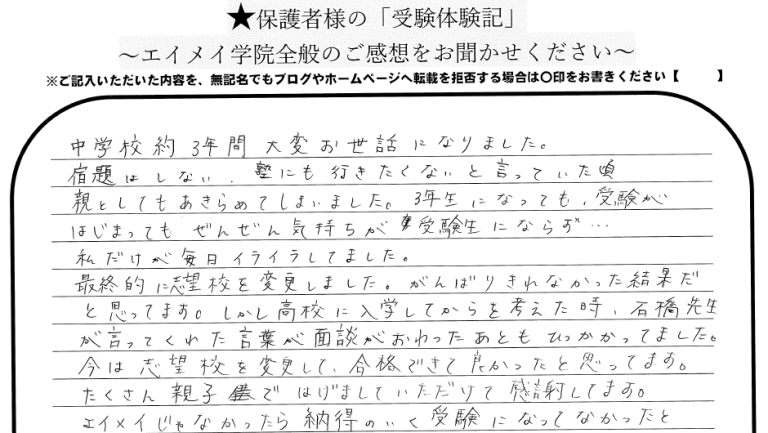 ★保護者様の「受験体験記」
～エイメイ学院全般のご感想をお聞かせください～
※ご記入いただいた内容を、無記名でもブログやホームページへ転載を拒否する場合は〇印をお書きください【　　　】
中学校約3年間 大変お世話になりました。
宿題はしない、塾にも行きたくないと言っていた頃
親としてもあきらめてしまいました。3年生になっても、受験が
はじまっても ぜんぜん気持ちが 受験生にならず…
私だけが毎日イライラしてました。
最終的に志望校を変更しました。がんばりきれなかった結果だ
と思ってます。しかし高校に入学してからを考えた時、石橋先生
が言ってくれた言葉が面談がおわったあともひっかかってました。
今は志望校を変更して、合格できて良かったと思ってます。
たくさん親子で はげましていただけて感謝してます。
エイメイじゃなかったら納得のいく受験になってなかったと